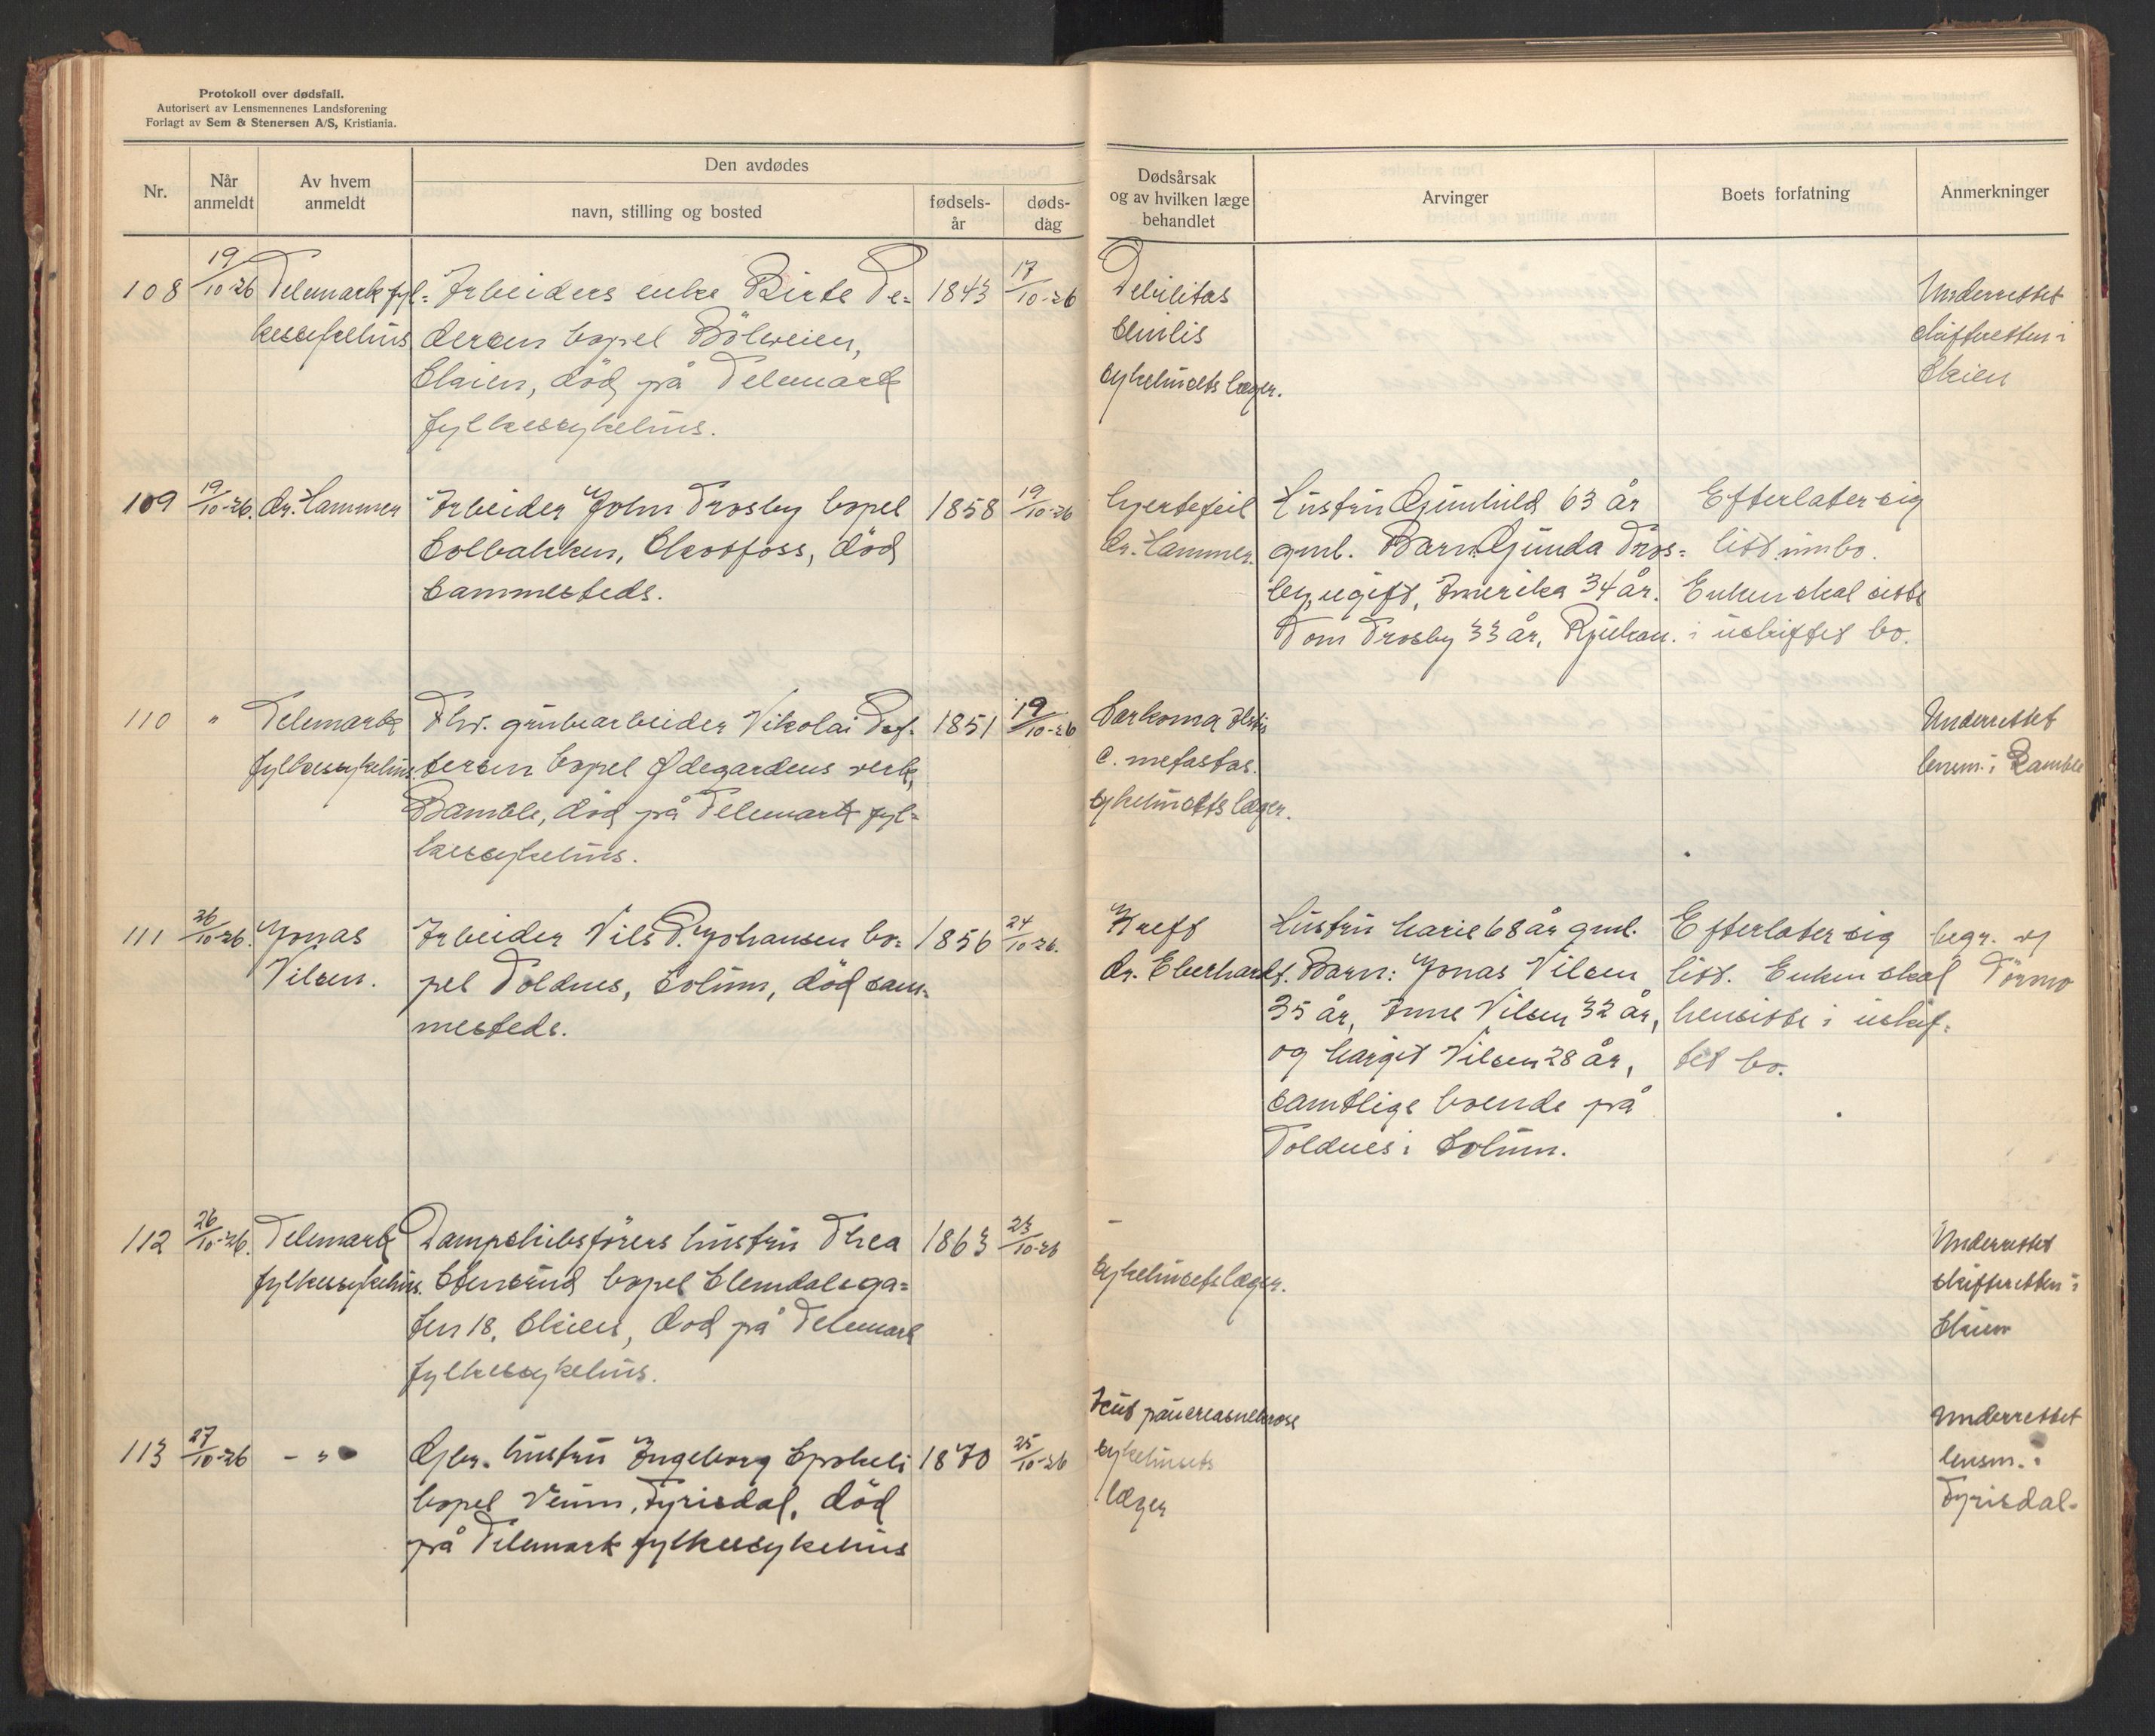 Protokoll over dødsfall.
Autorisert av Lensmennenes Landsforening
Forlagt av Sem & Stenersen A/S, Kristiania.
Nr.
Når anmeldt
Av hvem anmeldt
Den avdødes
navn, stilling og bosted
fødsels-
år
døds-
dag
Dødsårsak
og av hvilken læge
behandlet
Arvinger
Boets forfatning
Anmerkninger
108 19/10-26 Telemark fyl= Arbeiders enke Birte Pe= 1843 17/10-26 Debilitas Underrettet
kessykehus dersen bopel Bölveien, senilis skifteretten i
Skien, död på Telemark sykehusets læger. Skien
fylkessykehus.
109 19/10-26. dr. Hammer Arbeider John Trosby bopel 1858 19/10-26 hjertefeil Hustru Gunhild 63 år Efterlater sig
Solbakken, Skotfoss, död dr. Hammer. gml. Barn Gunda Tros= litt innbo.
sammesteds. by, ugift, Amerika 34 år. Enken skal sitte
Tom Trosby 33 år, Rjukan. i uskiftet bo.
110 " Telemark Fhv. grubearbeider Nikolai Pet- 1851 19/10-26 Sarkoma Underrettet
fylkessykehus. tersen bopel Ødegardens verk, c. metastas. lensm. i Bamble
Bamble, död på Telemark fyl= sykehusets læger.
kessykehus.
111 26/10-26. Jonas Arbeider Nils P. Johansen bo= 1856 24/10-26. Kreft Hustru Marie 68 år gml. Efterlater sig begr. av
Nilsen. pel Voldnes, Solum, död sam= dr. Eberhardt. Barn: Jonas Nilsen litt. Enken skal Törmo
mesteds. 35 år, Anne Nilsen 32 år, hensitte i uskif=
og Margit Nilsen 28 år, tet bo.
samtlige boende på
Voldnes i Solum.
112 26/10-26. Telemark Dampskibsförers hustru Thea 1863 23/10-26 - Underrettet
fylkessykehus. Stensrud bopel Clemdalsga= sykehusets læger. skifteretten i
ten 18, Skien, död på Telemark Skien
fylkessykehus.
Akut pancreasnekrose Underrettet
113 27/10-26 - " - Gbr. hustru Ingeborg Spokeli 1870 25/10-26 sykehusets lensm. i
bopel Veum, Fyrisdal, död læger Fyrisdal.
på Telemark fylkessykehus